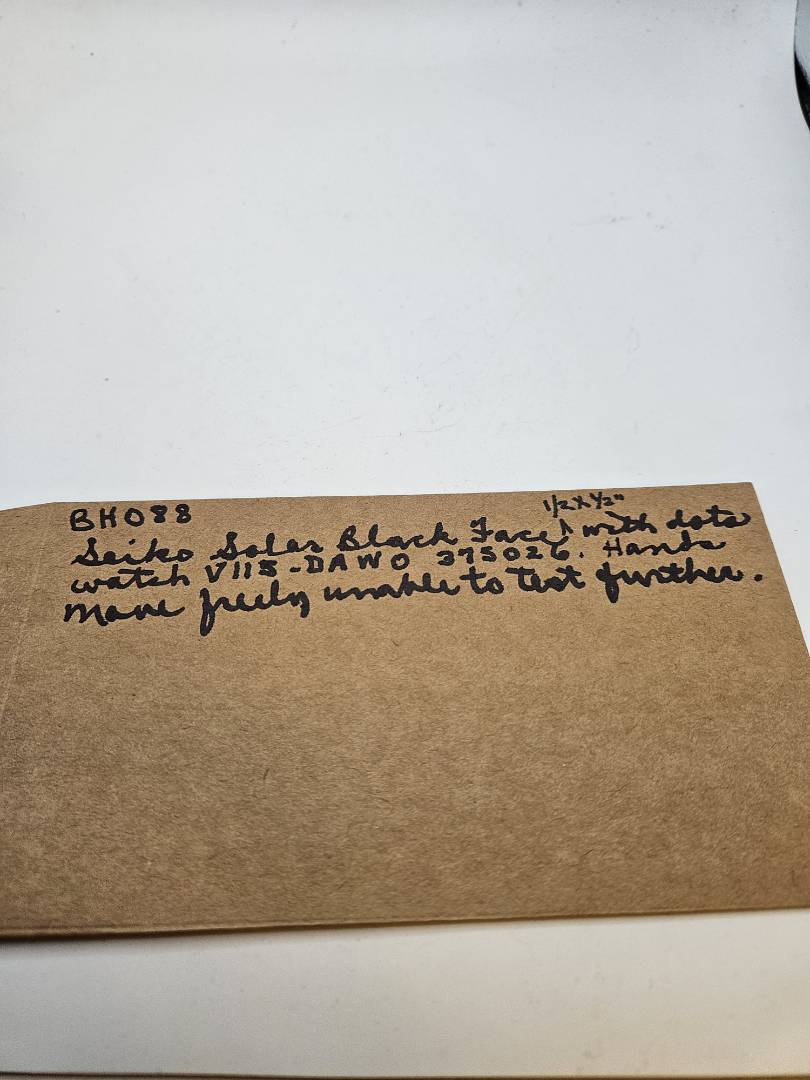 BH088
Seiko Solar Black Face 1/2 x 1/2" with dots
watch V115-DAWO 375026. Hands
move freely unable to test further.